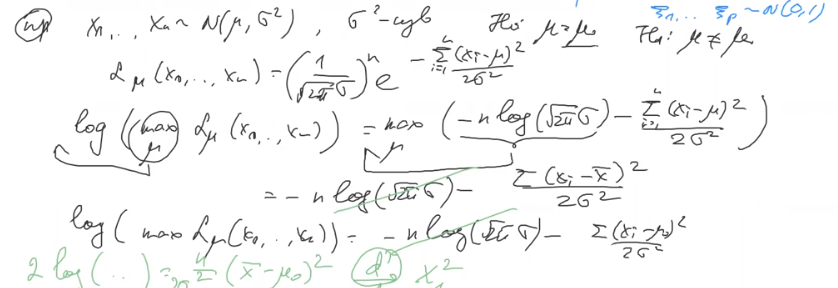 ξ₁, ... ξₚ ~ N(0,1)
x₁, .., xₙ ~ N(μ, σ²), σ² - H₀: μ = μ₀ H₁: μ ≠ μ₀
ℒ_μ (x₁, .., xₙ) = (1/(√2π σ))ⁿ e^(- Σᵢ₌₁ⁿ (xᵢ-μ)²/2σ²)
log (max_μ ℒ_μ (x₁, .., xₙ)) = max_μ (-n log(√2π σ) - Σᵢ₌₁ⁿ (xᵢ-μ)²/2σ²)
= - n log(√2π σ) - Σ (xᵢ - x̄)²/2σ²
log ( max ℒ_μ(x₁, .., xₙ)) = - n log(√2π σ) - Σ (xᵢ-μ₀)²/2σ²
2 log (..) = n/2 (x̄ - μ₀)²